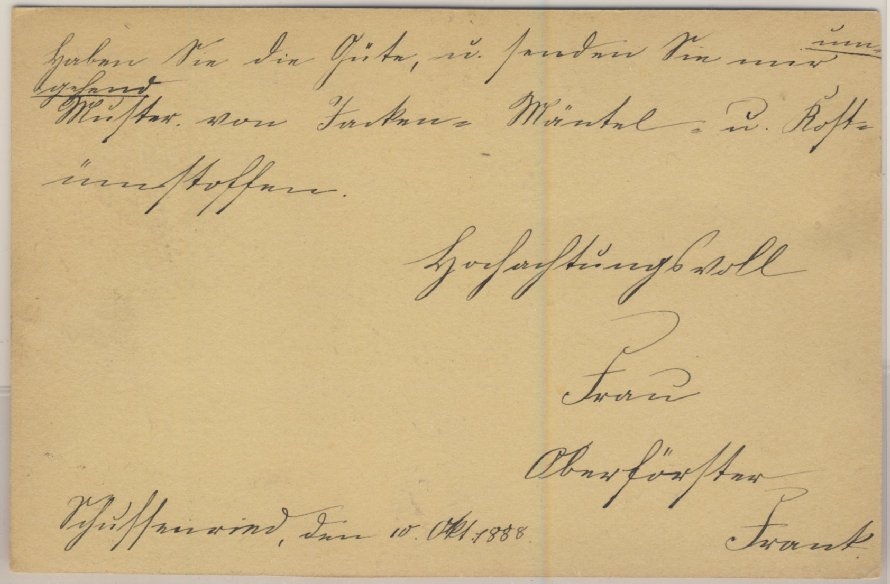 Haben Sie die Güte, u. senden Sie mir um-
gehend
Muster von Jacken- Mäntel- u. Kost-
ümstoffen.
Hochachtungsvoll
Frau
Oberförster
Frank.
Schussenried, den 10. Okt. 1888.